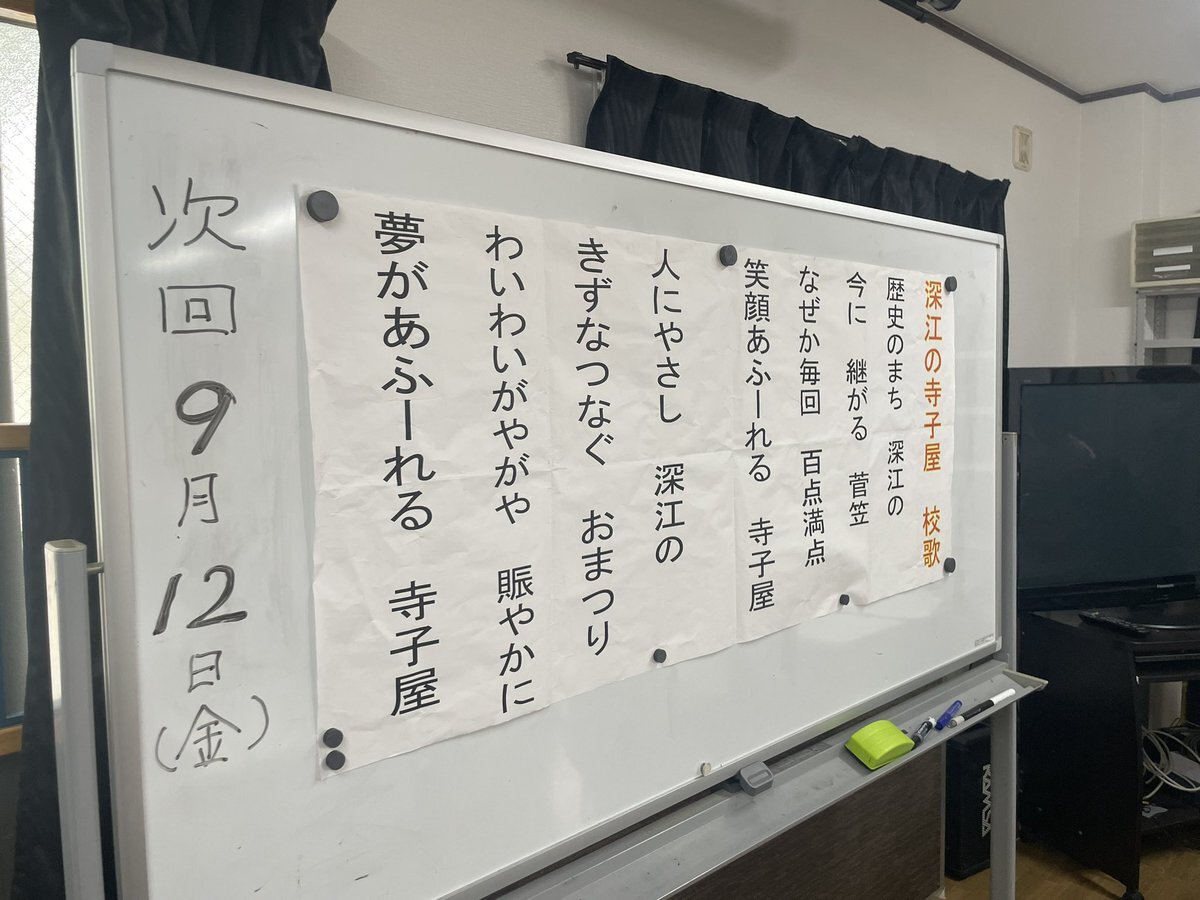 深江の寺子屋　校歌
歴史のまち　深江の
今に　継がる　菅笠
なぜか毎回　百点満点
笑顔あふーれる　寺子屋
人にやさし　深江の
きずなつなぐ　おまつり
わいわいがやがや　賑やかに
夢があふーれる　寺子屋
次回9月12日(金)
RAMSA